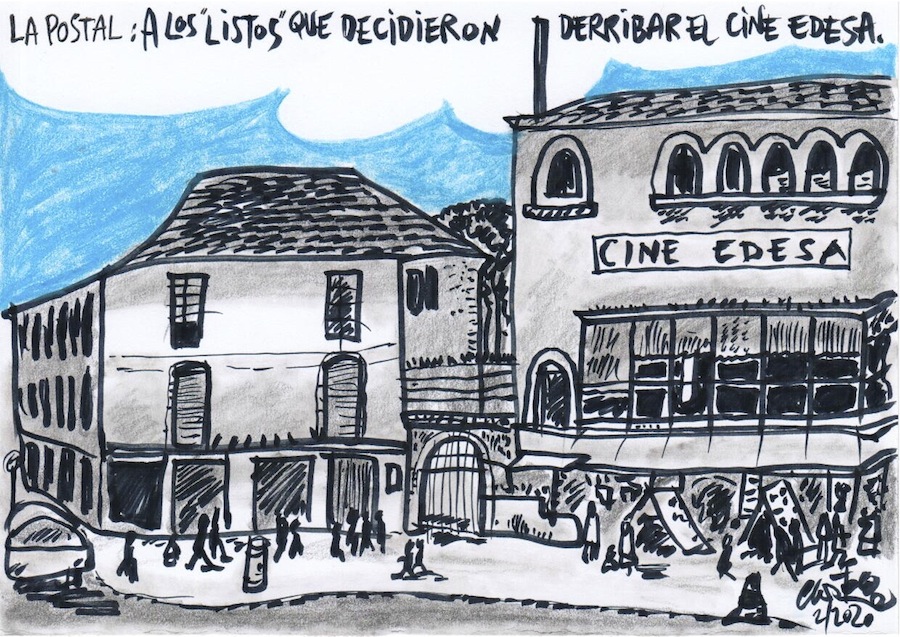 LA POSTAL: A LOS "LISTOS" QUE DECIDIERON DERRIBAR EL CINE EDESA.
CINE EDESA
2/2020